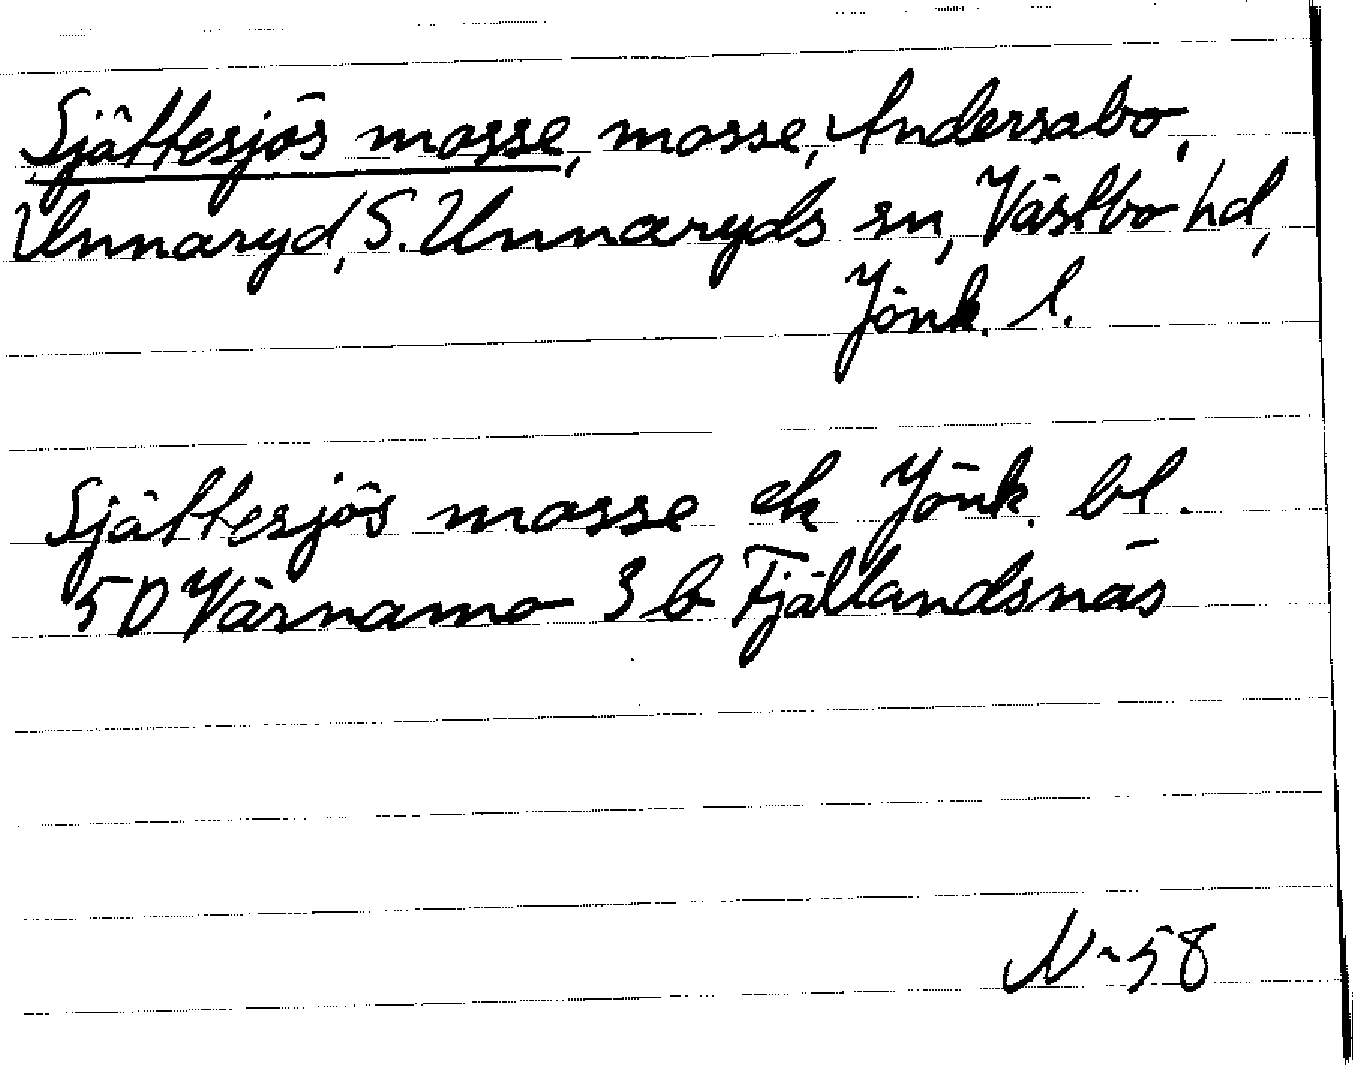 Sjättesjös mosse, mosse, Andersabo,
Unnaryd, S. Unnaryds sn, Västbo hd,
Jönk. l.
Sjättesjös mosse ek Jönk. bl.
5D Värnamo 3b Tjällandsnäs
N-58